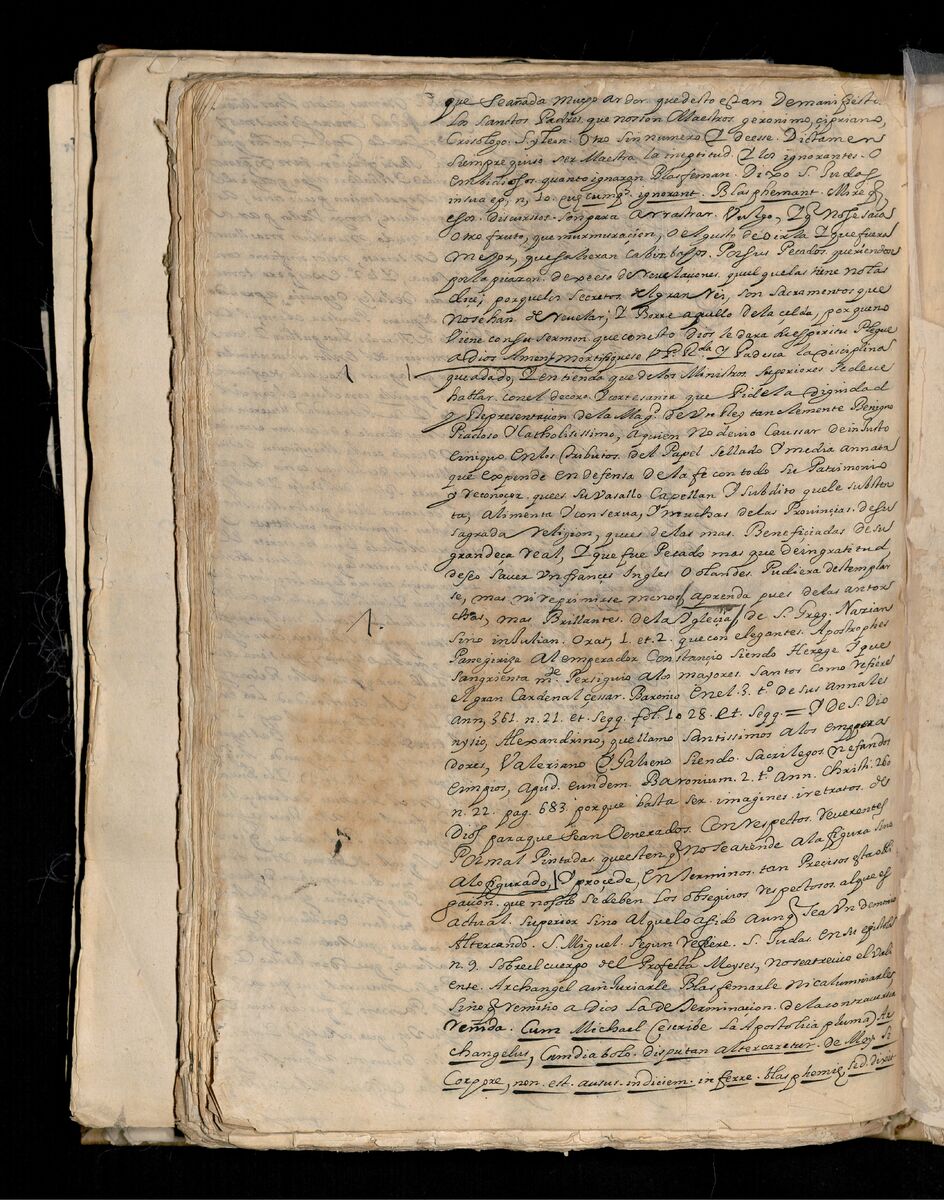 que Seañada mucho ardor quedesto estan Demanifiesto
Los Sanctos Padres que nosson Maestros geronimo, cipriano,
Crisologo S. Leon. Otro sin numero Y deesse. Dictamen
siempre quiso ser Maestra la ineptitud. Y los ignorantes. O
embidiosos. quanto ignaran Blasfeman. Dixo S. Judas
insua ep, n, 10. quecumq.e ignorant. Blasphemant. Mire q
esos. Discursos. son para arrastrar. Vulgo, Y q. no se saca
Otro fruto, que murmuracion, O el gusto de oirla Y que fuera
mejor, que salieran cabizbajos. Por sus Pecados. queriendose
por la de exceso de Revelaçiones. quel quelas tiene no las
dice; porquelos secretos. del gran Rei, son sacramentos que
nosehan. de Revelar; Y Borre aquello dela celda, por queno
Viene con su sermon. que conesto Dios le dara su espiritu Plegue
a Dios Amen mortifiquese V. P. R.da Y Padesca la disciplina
queadado, Y entienda que delos Ministros. superiores se deve
hablar. con el decoro Y cortesania que Pide la Dignidad
y Representacion dela Mag.d de Vn Rey tan clemente Benigno
Piadoso Y Catholisissimo, a quien No devio Caussar de injusto
einiquo en los tributos. del Papel sellado Y media annata
que expende en defensa de la fe con todo su Patrimonio
y reconocer. quees su Vasallo Capellan Y subdito quele susten
ta, alimenta Y conserva, Y muchas delas Provinçias. desu
sagrada religion, ques delas mas. Beneficiadas de su
grandeça real, Y que fue Pecado mas que deingratitud
deseo saver Vn françes Ingles O olandes. Pudiera destemplar
se, mas ni reprimirse menos, aprenda pues delas antor
chas, mas Brillantes. dela Yglecia, de S. Greg. Nazian
sino in Iulian. Orat, 1. et. 2. que con elegantes. Apostrophes
Panegiriza al emperador Constançio siendo Herege Y que
sangrienta m.te Persiguio a los mayores. santos como refiere
el gran Cardenal çesar. Baronio en el. 3. t.o de sus Annales
Ann, 361. n. 21. et. Seqq. fol. 1028. et. Seqq. = Y de S. Dio
nysio, Alexandrino, que llamo santissimos alos empera
dores, Valeriano Y Galieno siendo. sacrilegos nefandos
eimpios, apud. eundem. Baronium. 2. t.o Ann. Christi. 260
n. 22. pag. 683. porque basta ser. imagines. iretratos. de
Dios paraque sean Venerados. Con respectos. reverentes
Por mal Pintadas. queesten q noseatiende ala figura sino
alo figurado, Y procede, en terminos. tan Precisos esta obli
gacion. que nosolo se deben Los obsequios respectosos. al que es
actual. superior sino al quelo a sido aunq. sea Vn demonio
Altercando. S. Miguel. segun refiere. S. Judas. en su epistola
n. 9. sobreel cuerpo del Profeta Moyses, noseatrevio el Vali
ente. Archangel ainjuriarle Blasfemarle Nicalumniarle,
sino q remitio a Dios La determinacion. de la controversia
renida. Cum Michael (escribe La Apostolica pluma) Ar
changelus, Cum diabolo. disputan altercaretur. de Moysi
Corpore, non. est. ausus. indiciem. inferre. blasphemię, sed. dixit
1
1.